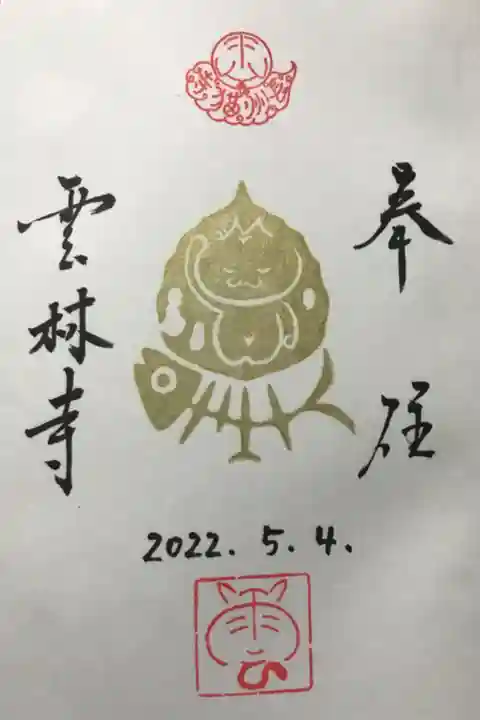 奉拝
雲林寺
2022. 5. 4.